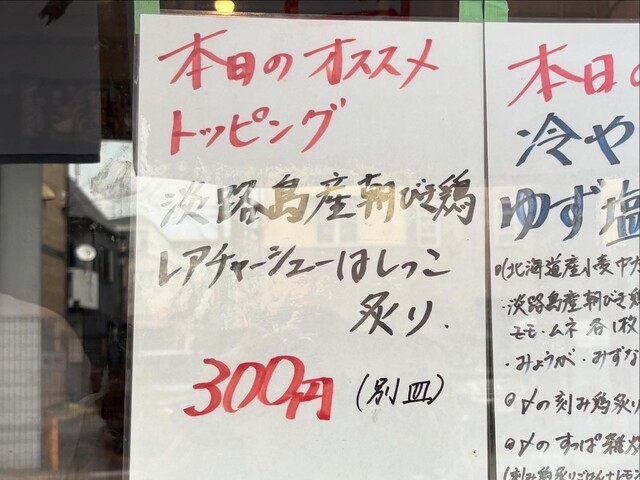 本日のオススメ
トッピング
淡路島産朝びき鶏
レアチャーシューはしっこ
炙り.
300円(別皿)
本日
冷や
ゆず塩
(北海道産小麦中太
・淡路島産朝びき鶏
モモ・ムネ各1枚
・みょうが・みずな
〆の刻み鶏炙り
〆のすっぱ雑炊
(刻み鶏炙りごはん+レモン